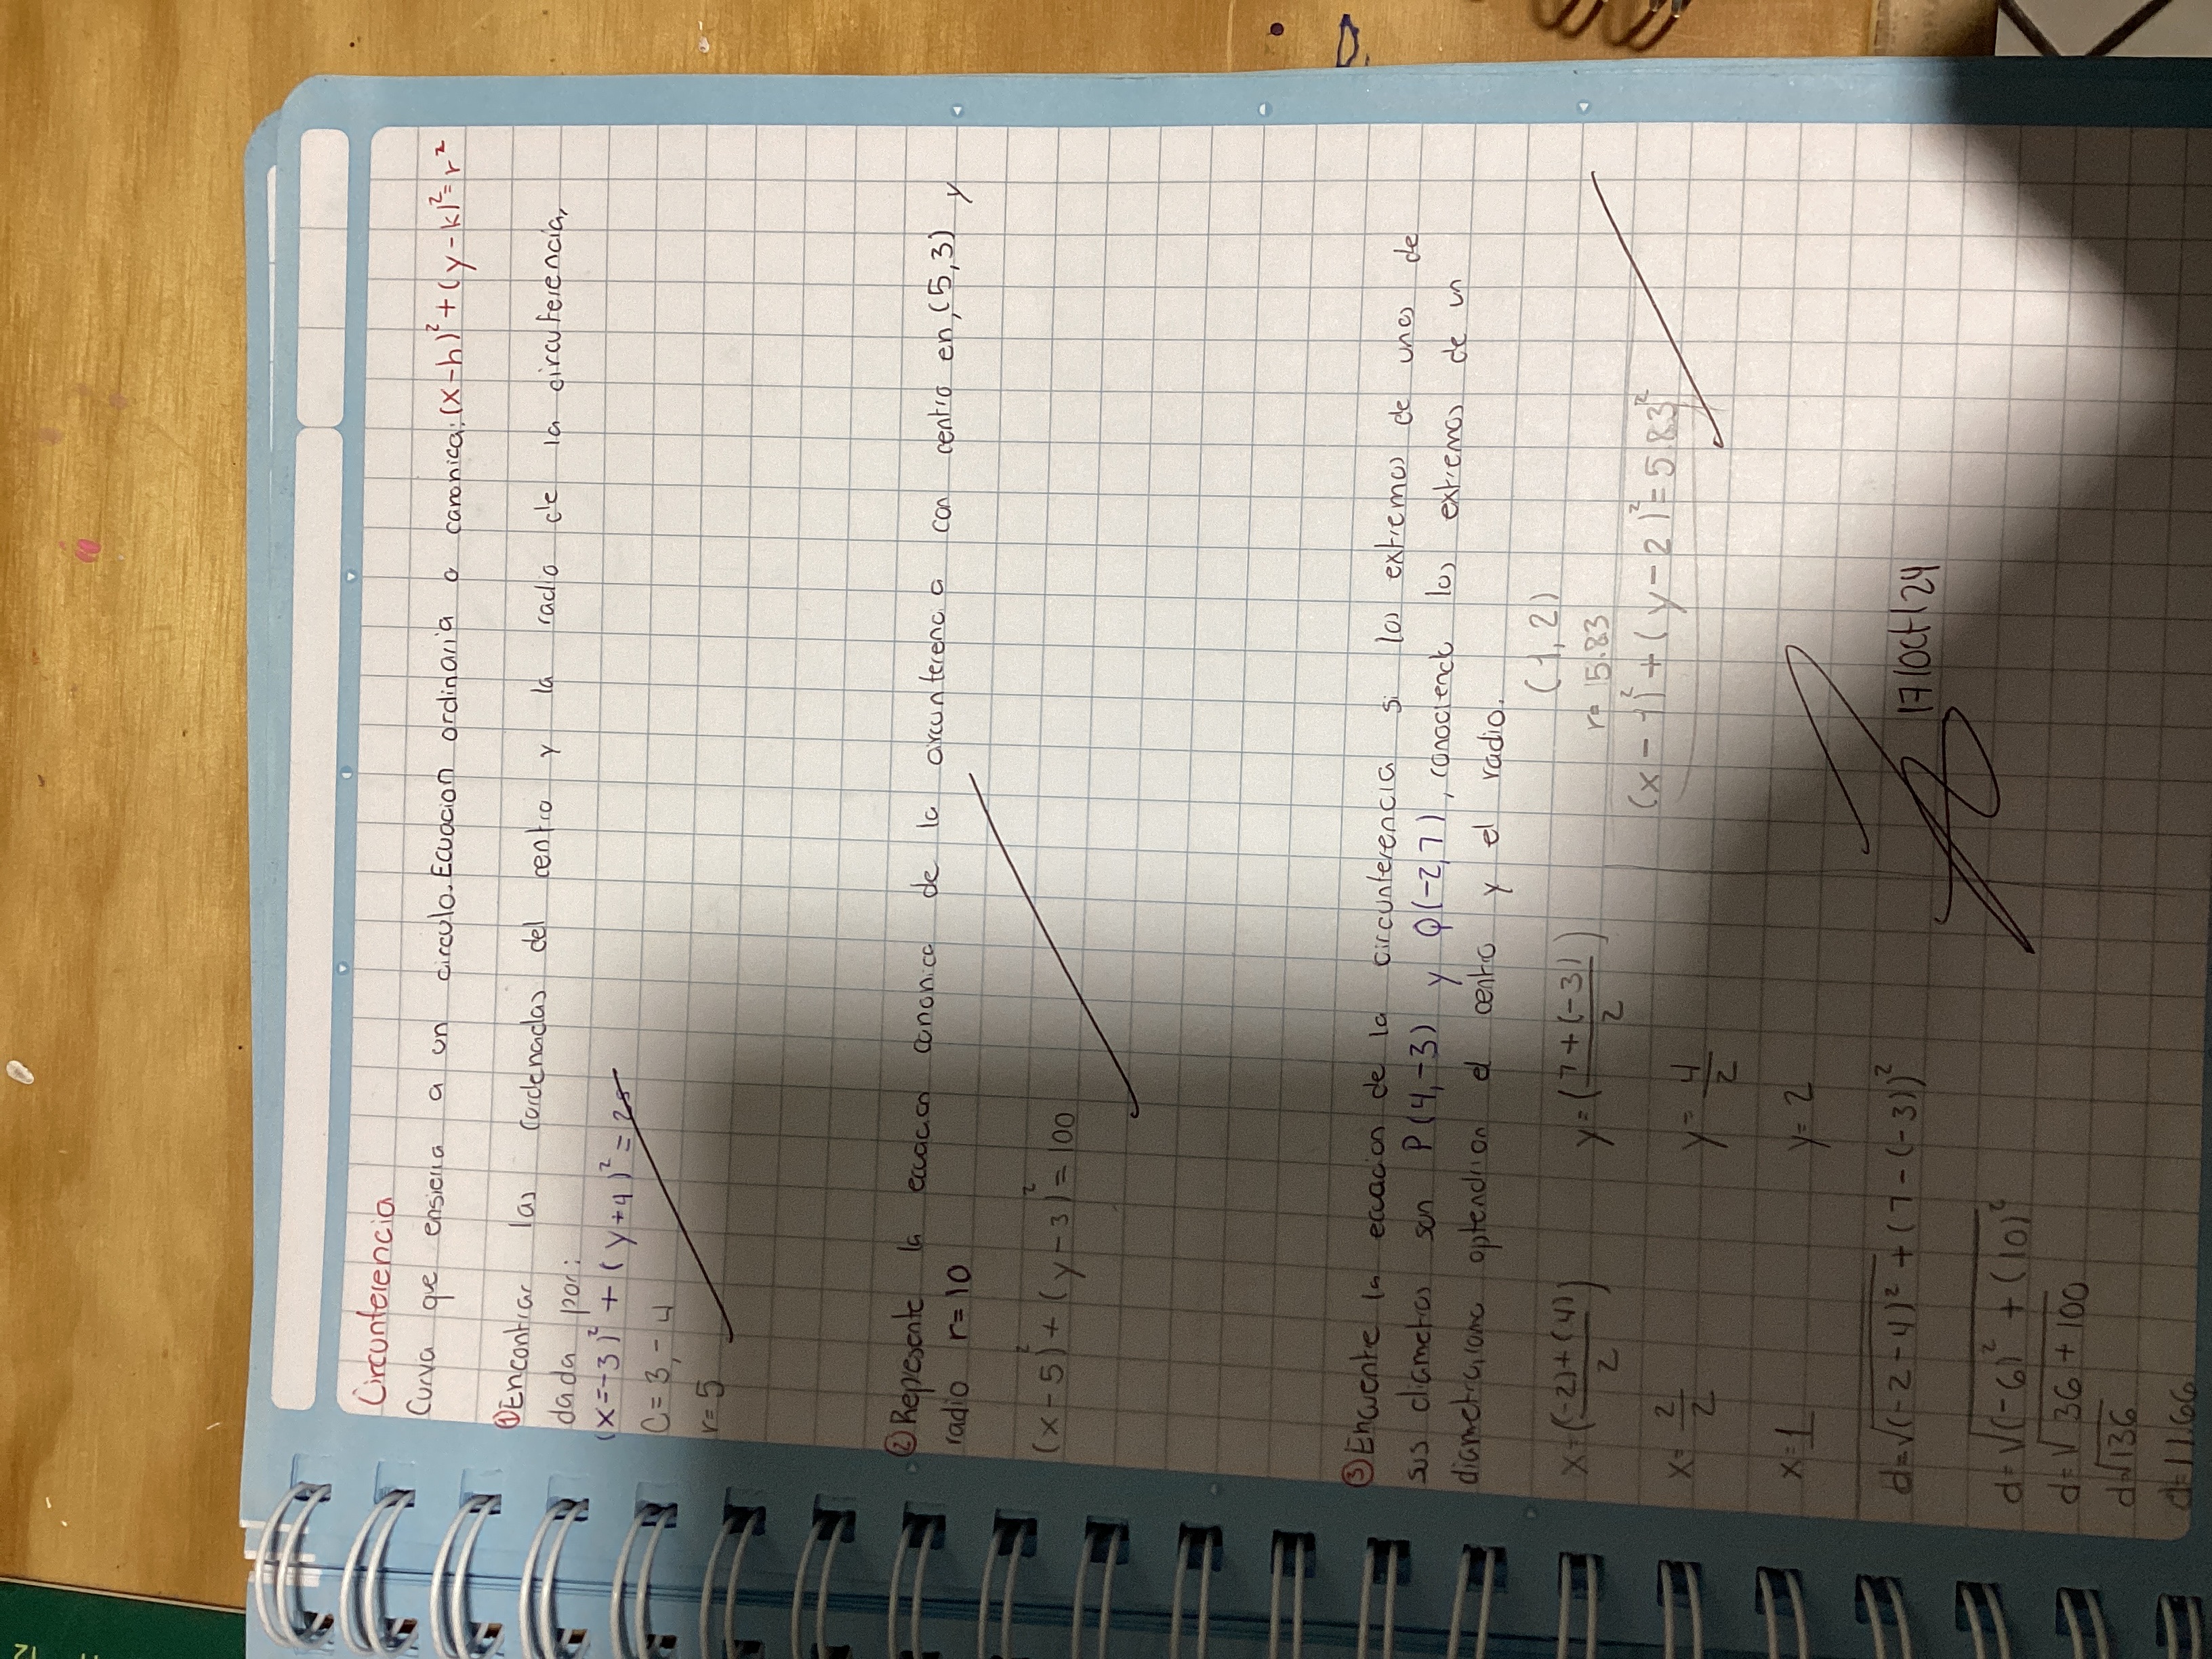 Circunferencia
Curva que ensierra a un circulo. Ecuacion ordinaria o canonica: (x-h)²+(y-k)²=r²
① Encontrar las Cordenadas del centro y la radio de la circuferencia,
dada por:
(x=-3)² + (y+4)² = 25
C = 3, -4
r=5
② Represente la ecuacion canonica de la circunferenc a con centro en, (5,3) y
radio r=10
(x-5)² + (y-3)² = 100
③ Encuentre la ecuacion de la circunferencia si los extremos de unos de
sus diametros son P(4,-3) y Q(-2,7), conociendo los extremos de un
el centro y el radio.
x=((-2)+(4)/2)
y=(7+(-3)/2)
(1,2)
r= 5.83
x= 2/2
y= 4/2
(x-1)² + (y-2)² = 5.83²
x=1
y= 2
d=√(-2-4)² + (7-(-3))²
17/oct/24
d=√(-6)² + (10)²
d=√36+100
d=√136
d=11.66
12